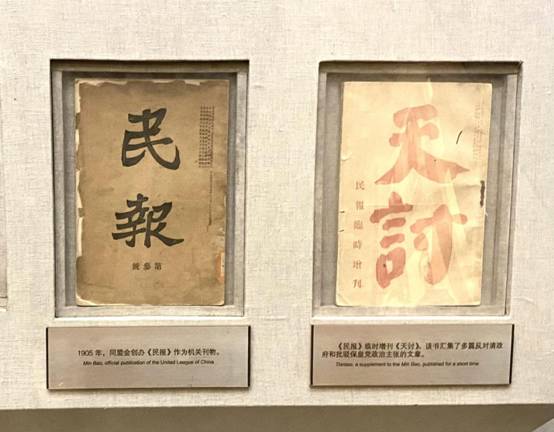 民
報
第參號
1905 年，同盟会创办《民报》作为机关刊物。
Min Bao, official publication of the United League of China
天
討
民報臨時增刊
《民报》临时增刊《天讨》。该书汇集了多篇反对清政
府和批驳保皇党政治主张的文章。
Tiantao, a supplement to the Min Bao, published for a short time